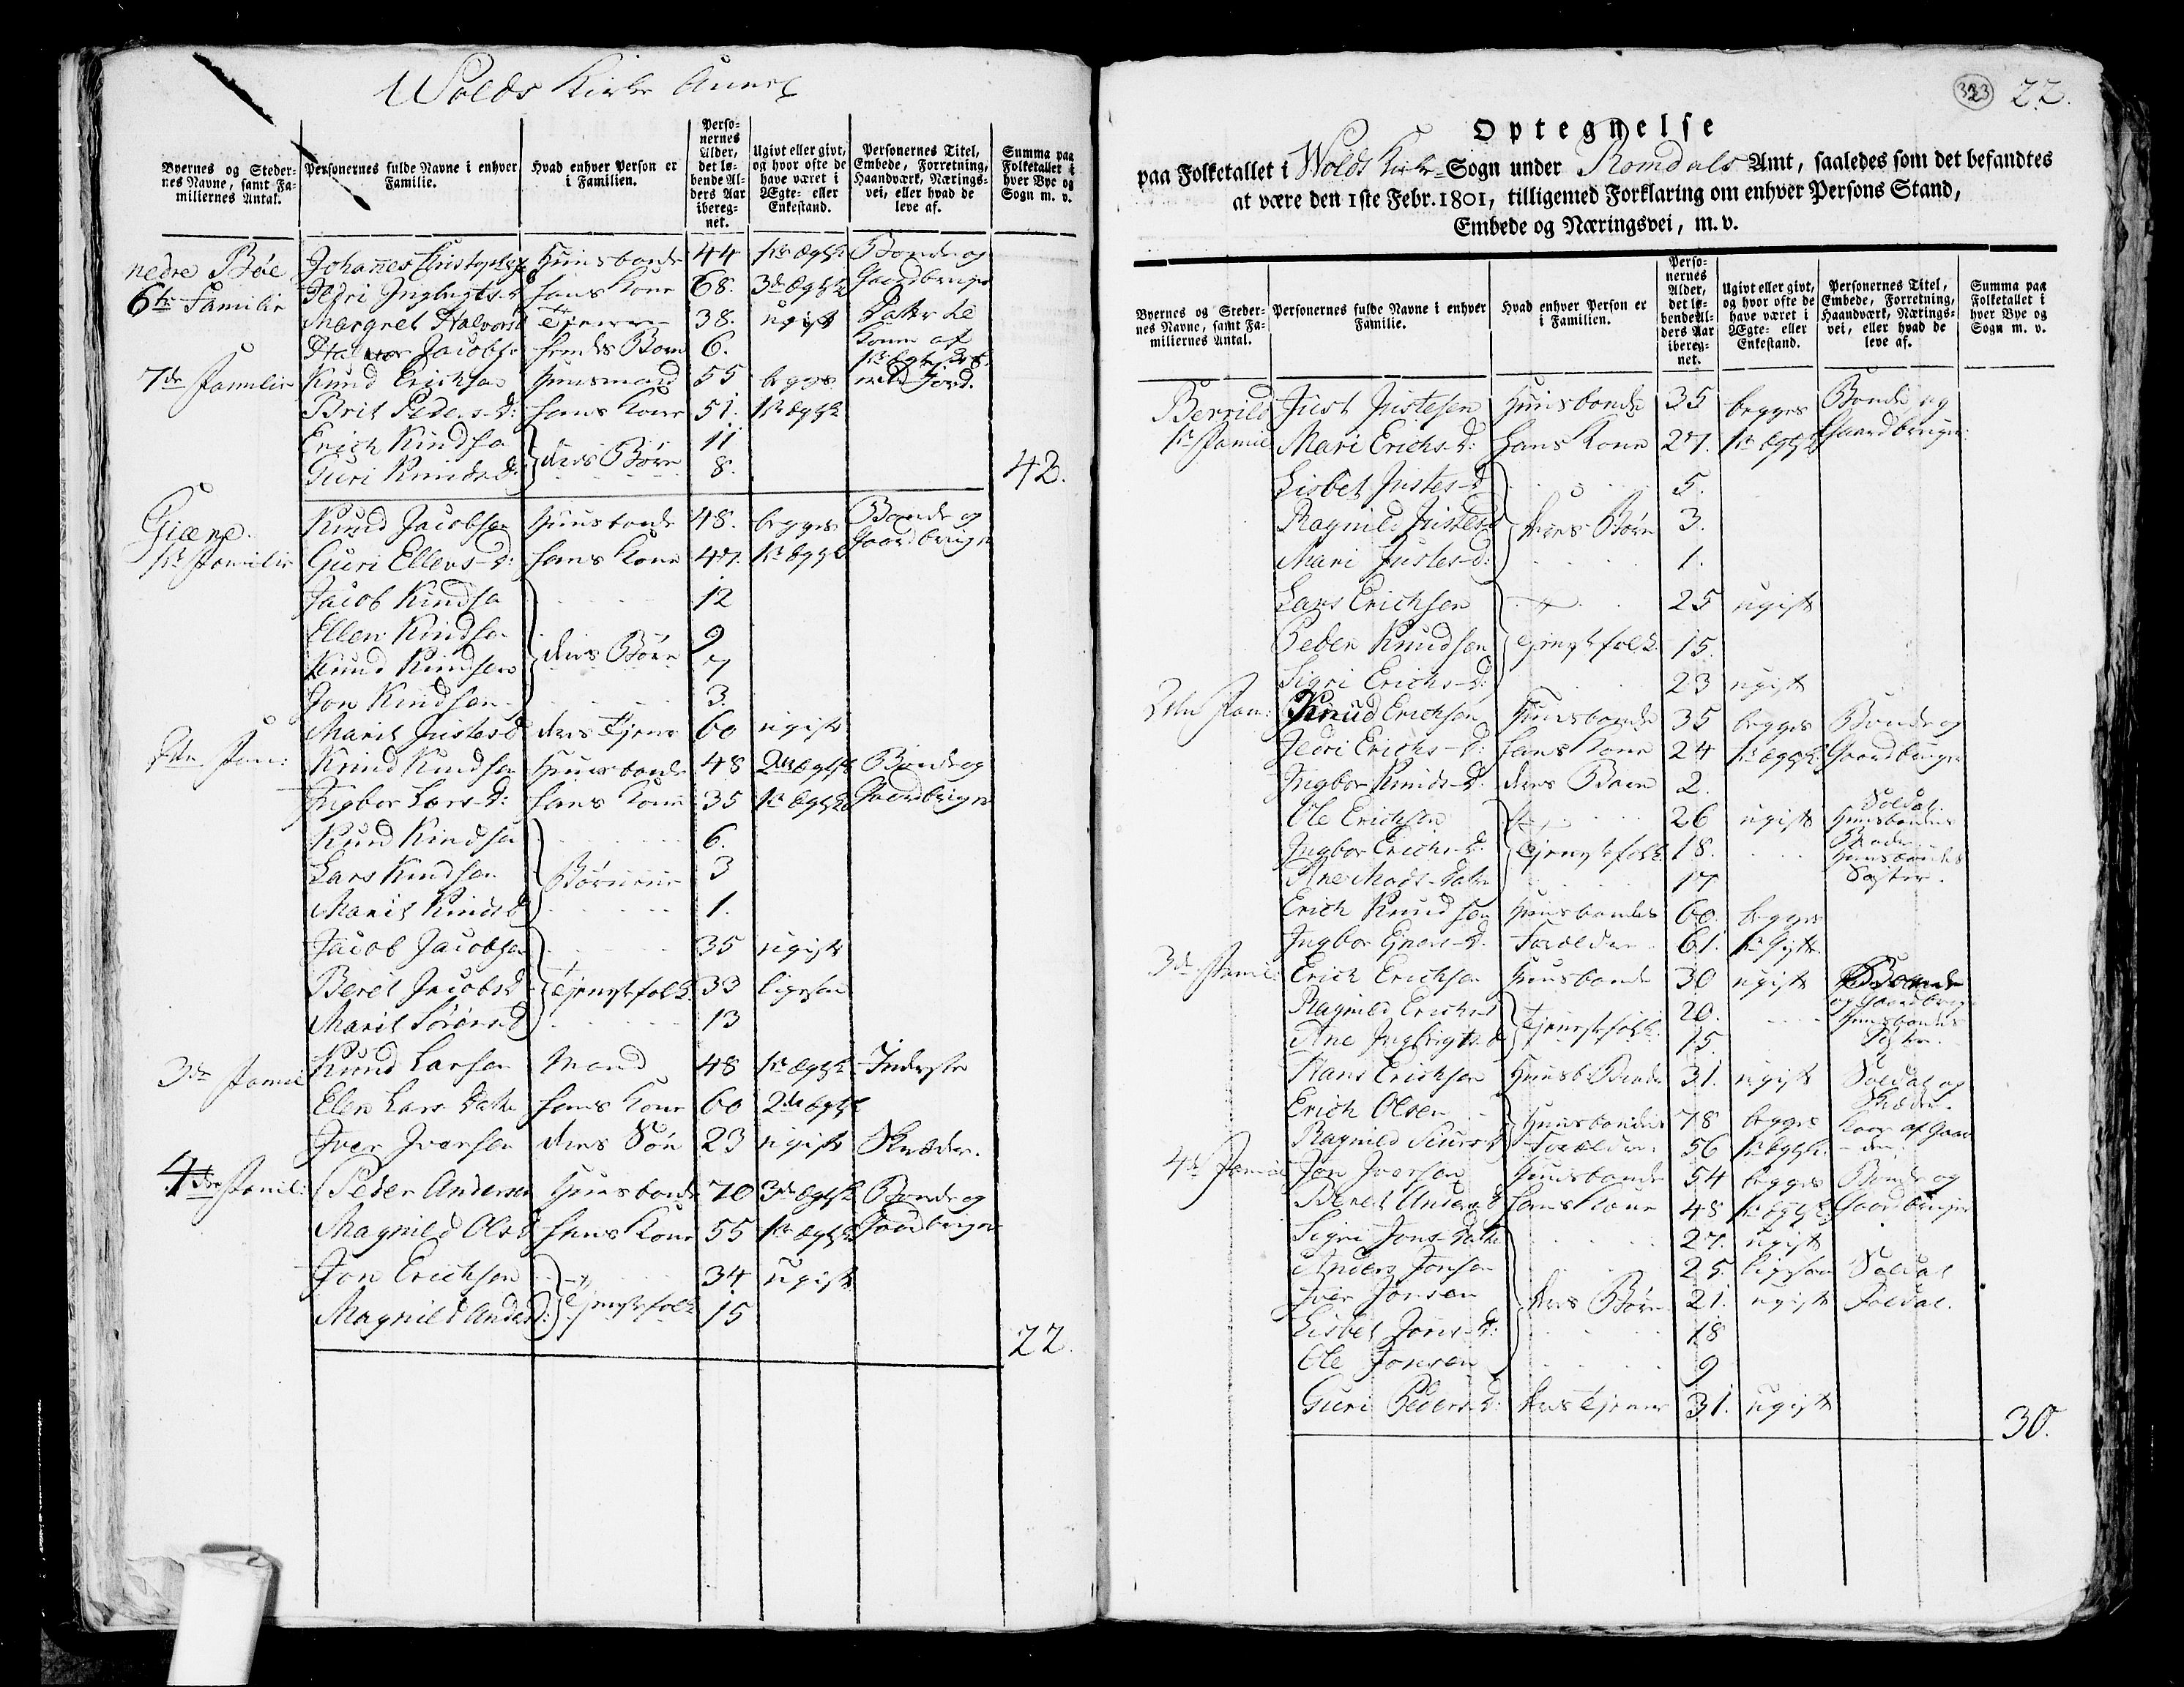 Wolds Kirke Annex
Byernes og Stedernes Navne, samt Familiernes Antal.
Personernes fulde Navne i enhver Familie.
Hvad enhver Person er i Familien.
Personernes Alder, det lebende Alders Aar iberegnet.
Ugivt eller givt, og hvor ofte de have været i Ægte- eller Enkestand.
Personernes Titel, Embede, Forretning, Haandværk, Næringsvei, eller hvad de leve af.
Summa paa Folketallet i hver Bye og Sogn m. v.
nedre Bøe Johannes Huusbonde 44 1te Ægtsk Bonde og
6te Familie hans Kone 68. 3de Ægtsk Gaardbruger
Margret Halvorsd 38. ugift
Jacobs 6.
7de Familie Knud Erichsen Huusmand 55 begges med Jord.
Brit Peders-D: hans Kone 51. 1te Ægtsk
Erich Knudsø 11
Guri Knuds-D: deres Børn 8. 42.
Giæne. Knud Jacobsen Huusbonde 48. begges Bonde og
1te Familie Guri Ellens-D: hans Kone 47. 1te Ægtsk Gaardbruger
Jacob Knudsø 12
Ellen Knudsø 9
Knud Knudsen deres Børn 7
Jon Knudsøn 3.
Marit Justes-D deres Tjener 60 ugift
2den Fam: Knud Knudsen Huusbonde 48 2den Ægtsk Bonde og
Ingbor Lars-D: hans Kone 35 1te Ægtsk Gaardbruger
Knud Knudsen 6.
Lars Knudsen Børnene 3
Marit Knudsd 1.
Jacob Jacobsen 35 ugift
Beret Jacobsd Tjenstfolk 33 ligesaa
Marit Sørensd 13
3de Famil Knud Larsen Mand 48 1te Ægtsk Inderste
Elen Lars Datter hans Kone 60 2den Ægtsk
Iver Iversen deres Søn 23 ugift Skræder.
4de Famil: Peder Andersen Huusbonde 70 3de Ægtsk Bonde og
Magnild Olsd hans Kone 55 1te Ægtsk Gaardbruger
Jon Erichsen 34 ugift
Magnild Andersd: Tjenstfolk 15
22.
323 22.
Optegnelse
paa Folketallet i Wolds Kirke-Sogn under Romdals Amt, saaledes som det befandtes
at være den 1ste Febr. 1801, tilligemed Forklaring om enhver Persons Stand,
Embede og Næringsvei, m. v.
Byernes og Stedernes Navne, samt Familiernes Antal.
Personernes fulde Navne i enhver Familie.
Hvad enhver Person er i Familien.
Personernes Alder, det lebende Alders Aar iberegnet.
Ugivt eller givt, og hvor ofte de have været i Ægte- eller Enkestand.
Personernes Titel, Embede, Forretning, Haandværk, Næringsvei, eller hvad de leve af.
Summa paa Folketallet i hver Bye og Sogn m. v.
Berrild Just Justesen Huusbonde 35 begges Bonde og
1te Famil Mari Erichs-D: hans Kone 27. 1te Ægtsk Gaardbruger
Lisbet Justes-D 5.
Ragnild Justes-D deres Børn 3.
Mari Justes-D: 1.
Lars Erichsen 25 ugift
Peder Knudsen Tjenstfolk 15.
Sigri Erichs-D: 23 ugift
2den Fam: Knud Erichsen Huusbonde 35 begges Bonde og
Erichs-D: hans Kone 24 1te Ægtsk: Gaardbruger
Ingbor Knuds-D. deres Barn 2.
Ole Erichsen 26 ugift Soldat. Huusbondens Broder
Ingbor Erichs-D. Tjenstfolk 18. Huusbondens Søster.
Ane Mads-Datter 17
Erich Knudsen Huusbondes 60. begges
Ingbor -D. Forældre 61. 1te Gifte.
3de Famil: Erich Erichsen Huusbonde 30 ugift Bonde og Gaardbrug
Ragnild Erichs-D 20. Huusbondes Søster.
Ane Ingbrigts-D Tjenstfolk. 15.
Hans Erichsen Huusb: Broder 31. ugift Soldat og Skræder.
Erich Olsen Huusbondens 78 begges af Gaar
Ragnild Siurs-D Forældre 56 1te Ægtsk. -den.
4de Famil Jon Iversen Huusbonde 54 begges Bonde og
Beret Anders-D hans Kone 48 1te Ægtsk: Gaardbruger
Sigri Jons-Datter 27. ugift
Anders Jonsen 25. ligesaa Soldat
Iver Jonsen deres Børn 21. ugift Soldat.
Lisbet Jons-D: 18
Ole Jonsen 9
Guri Peders-D: deres Tjener 31. ugift
30.